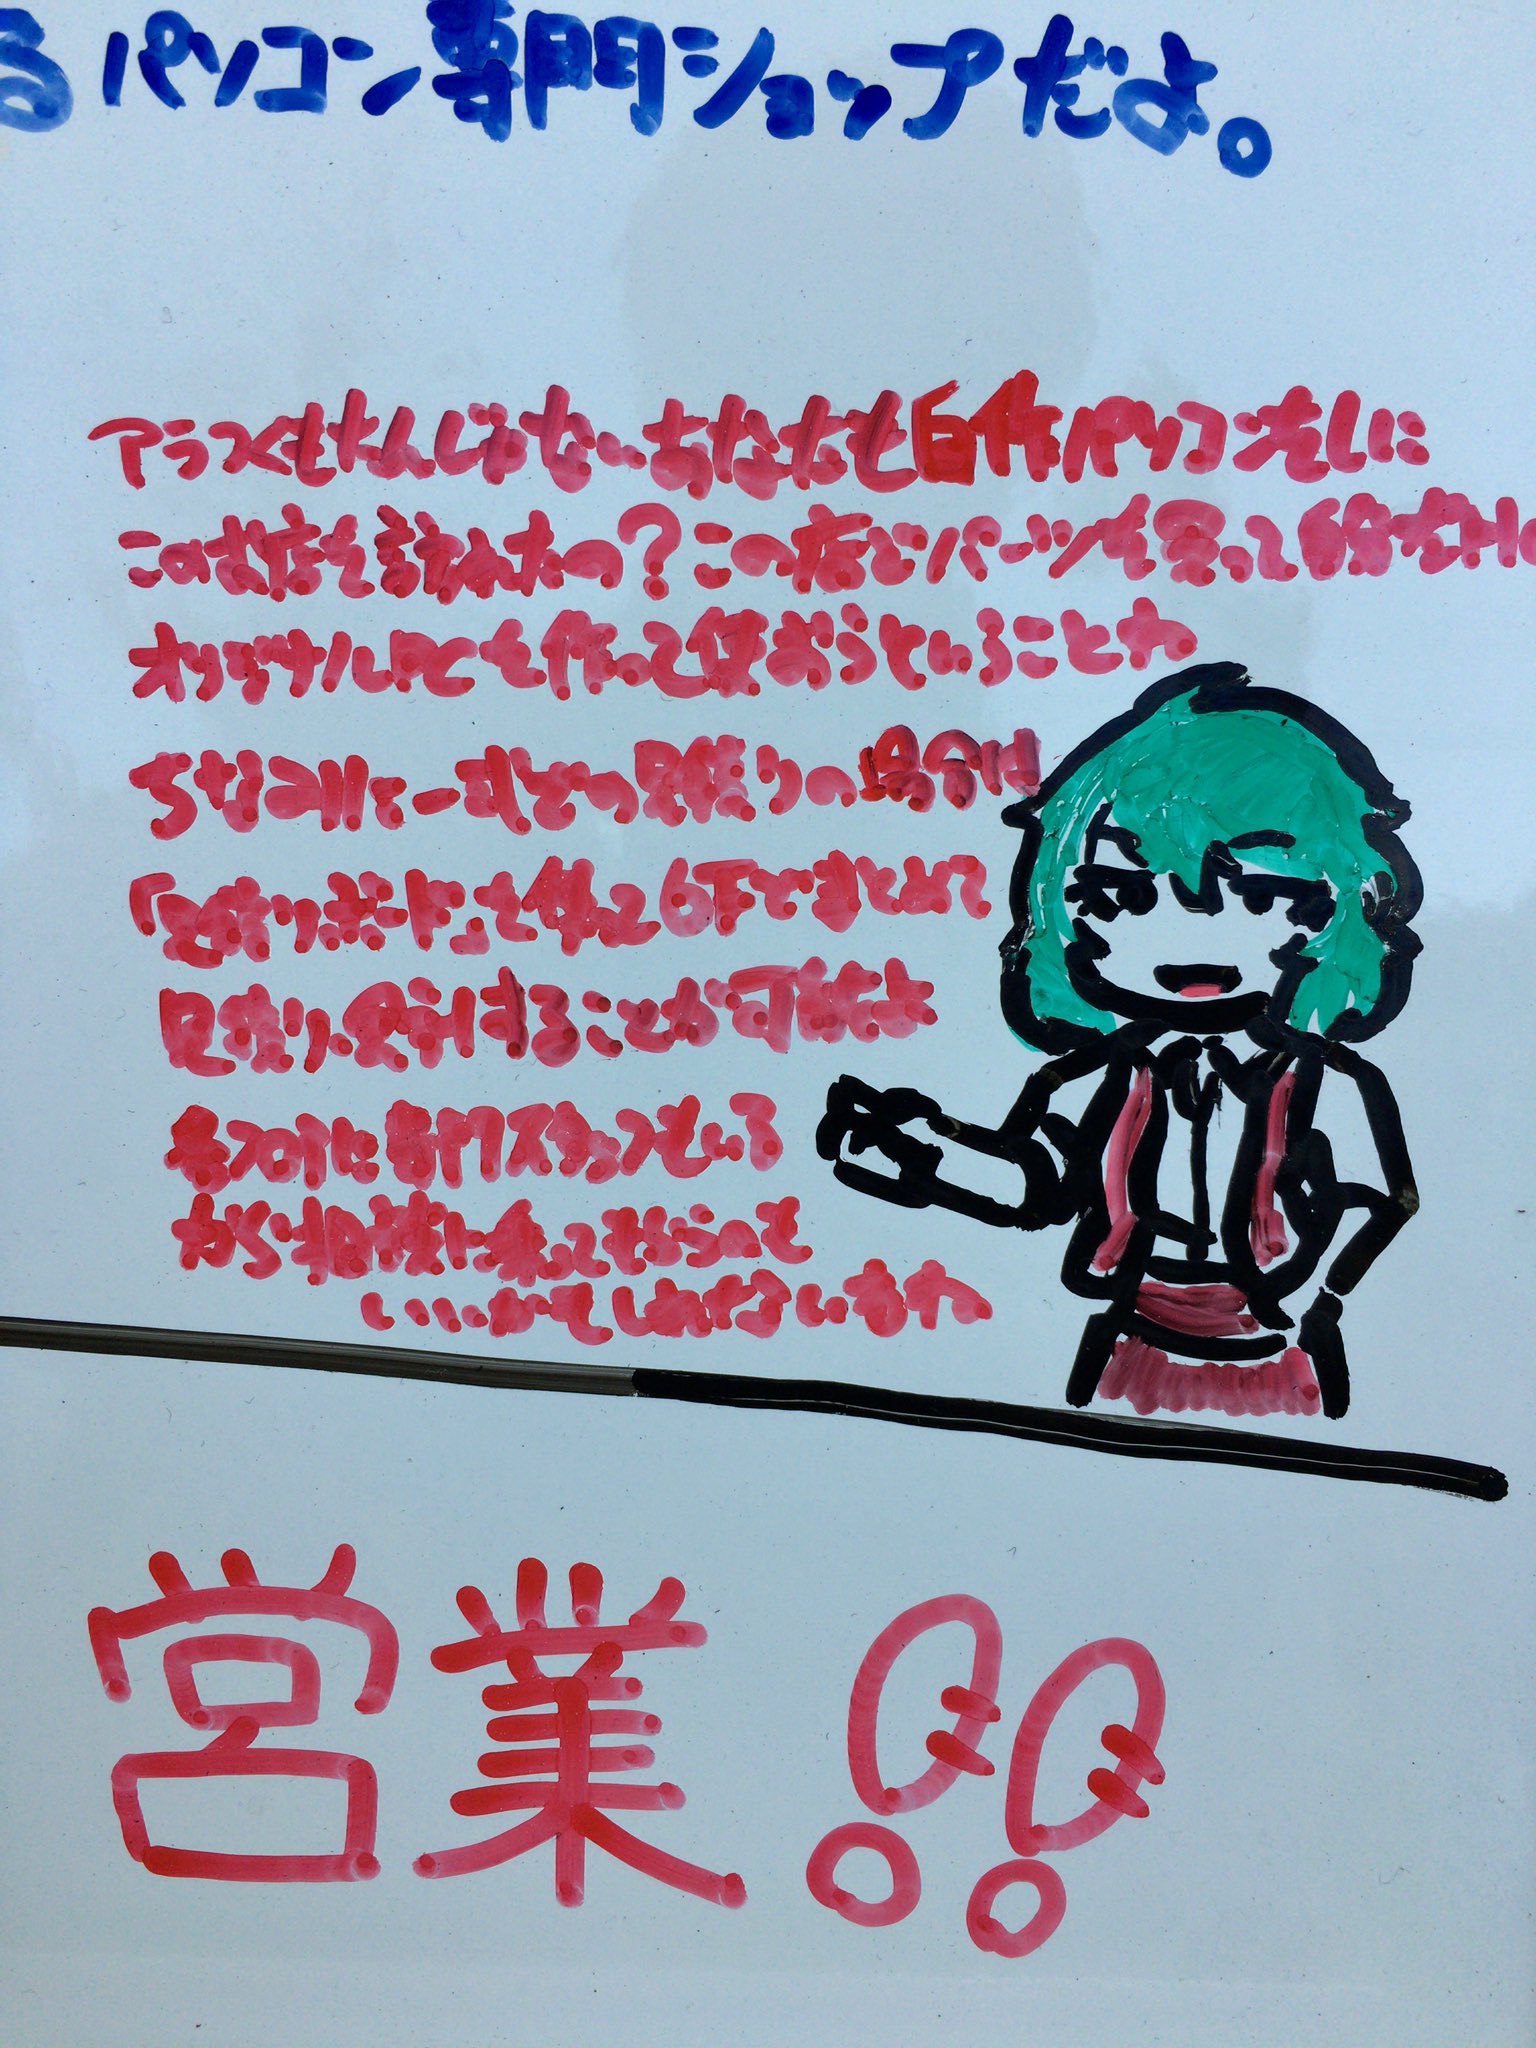 るパソコン専門ショップだよ。
アラ つくもたんじゃない あなたも自作パソコンをしに
このお店を訪れたの？この店でパーツを買って自分だけの
オリジナルPCを作って使おうということね
ちなみに一式での見積りの場合は
「見積りボード」を使って6Fでまとめて
見積り、受付することが可能よ
各フロアに専門スタッフもいる
から相談に乗ってもらうのも
いいかもしれないわね
営業!!